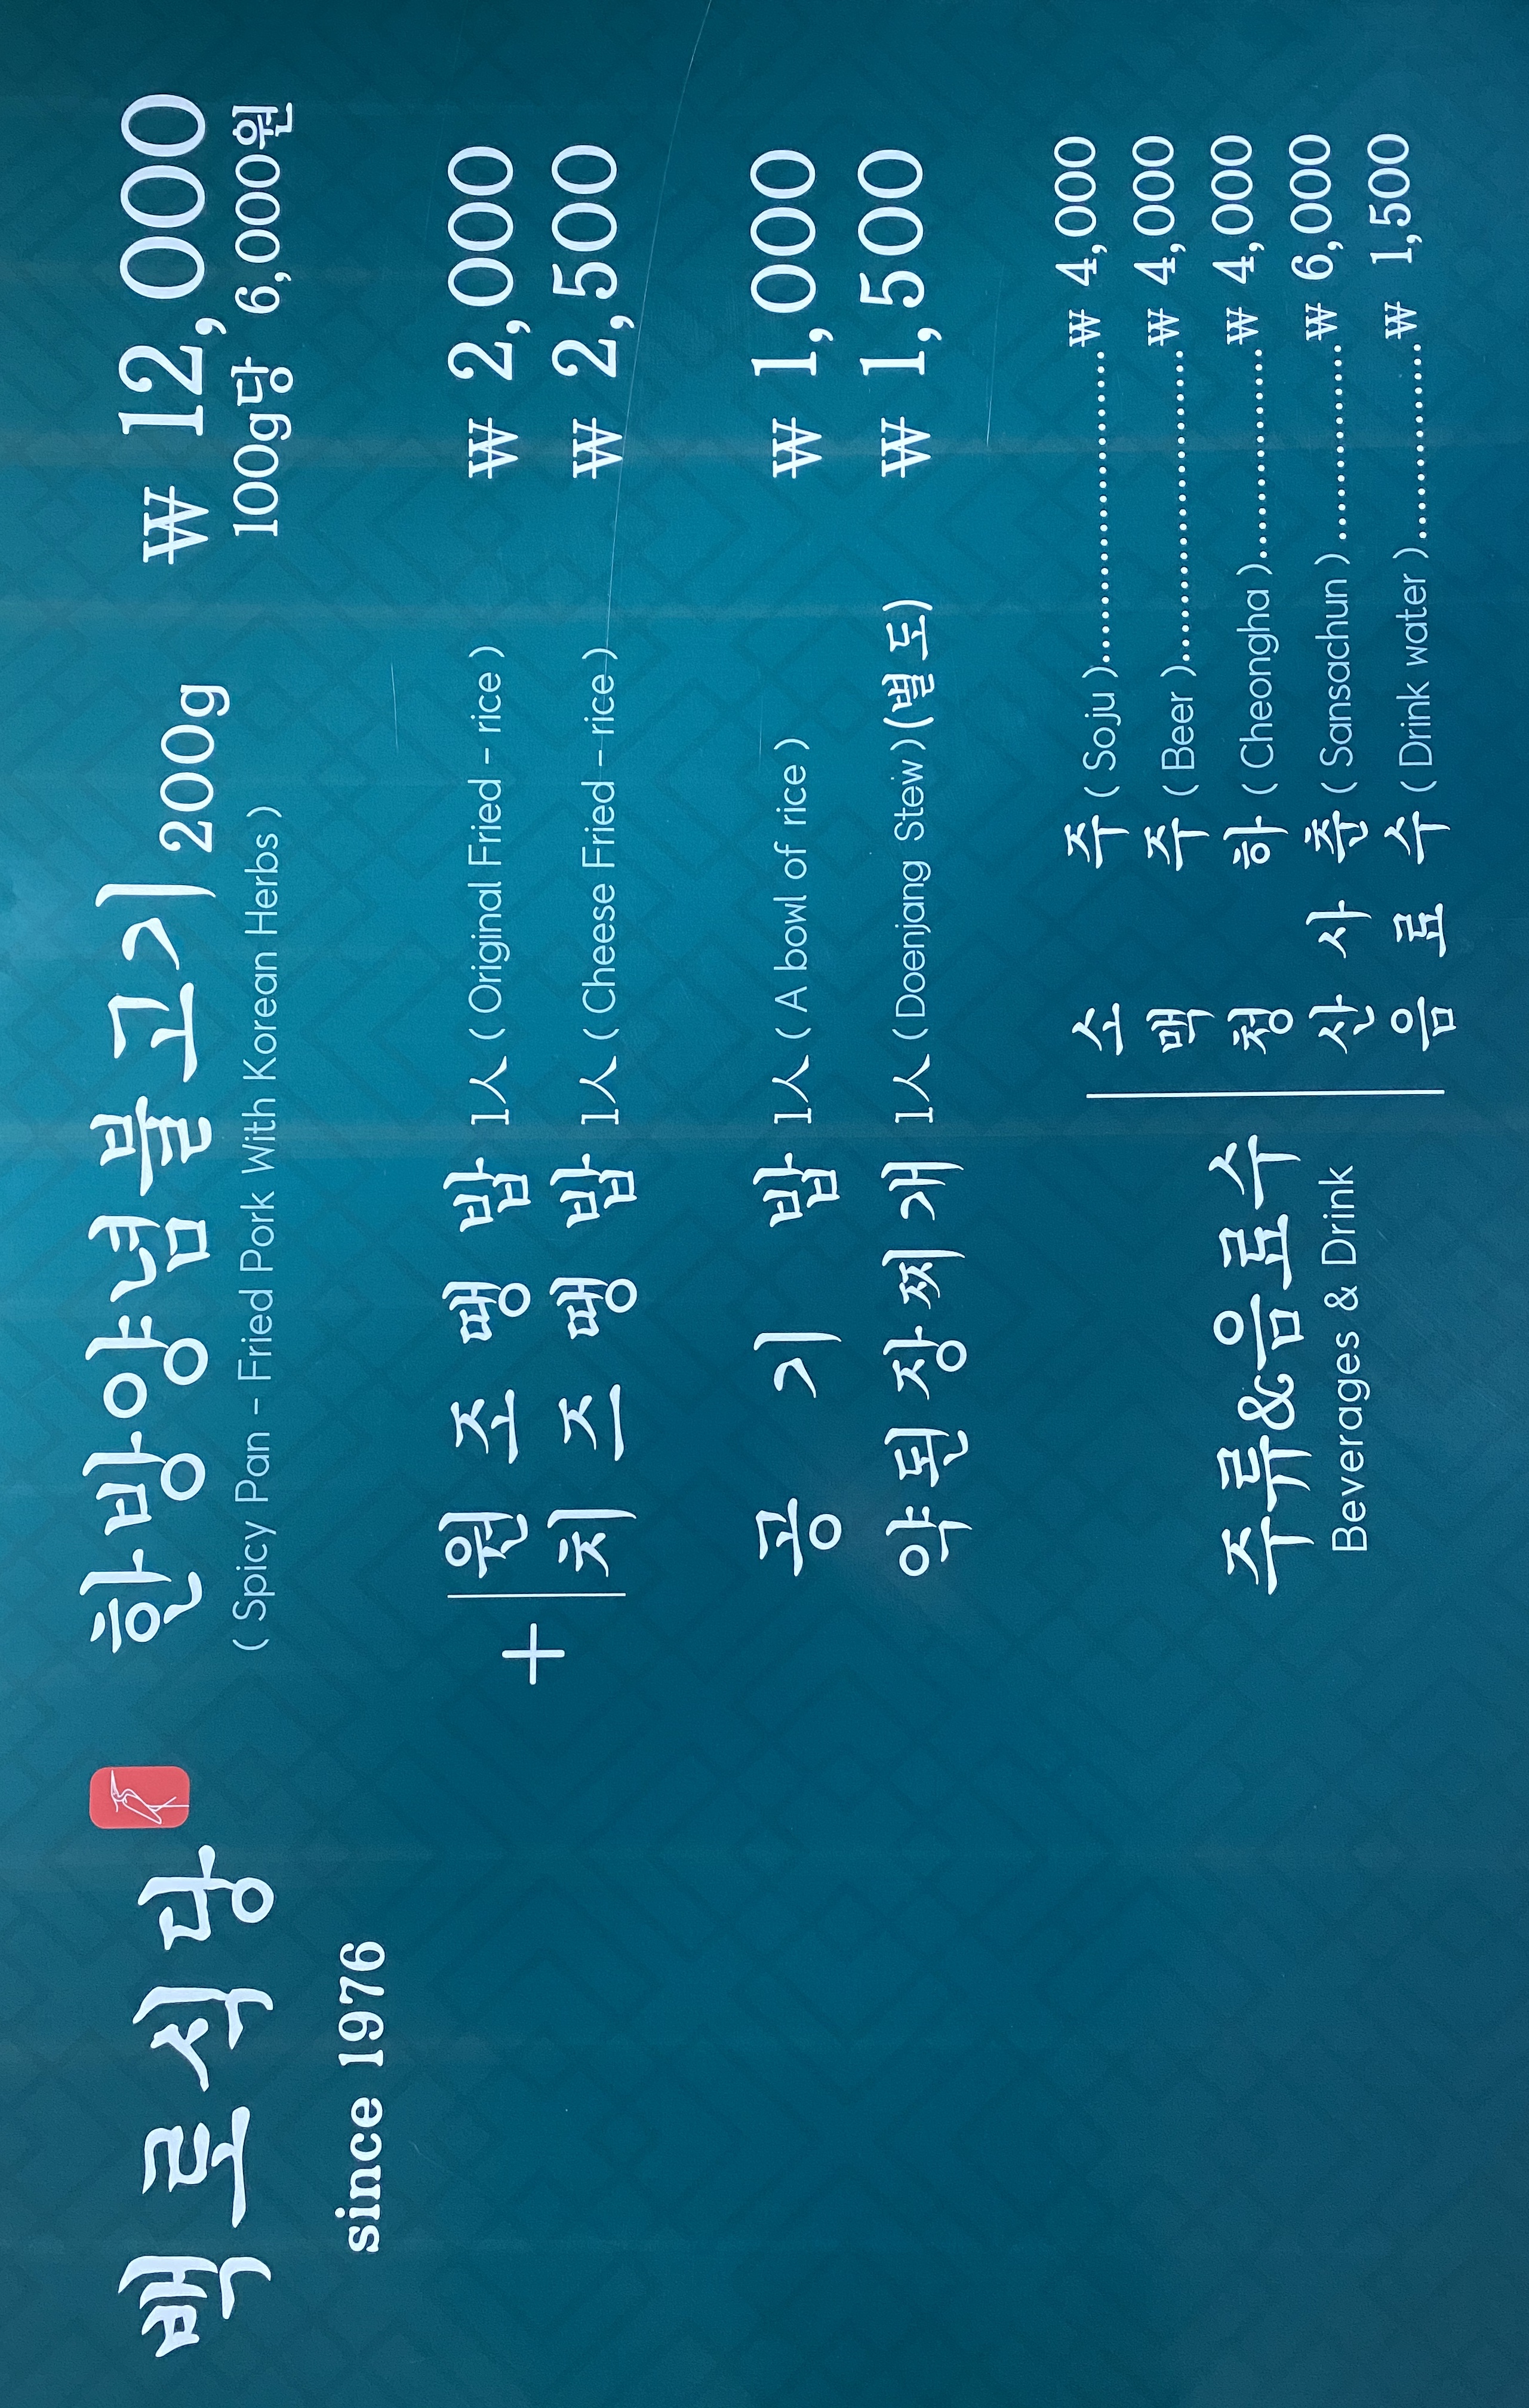 백로식당
since 1976
한방양념불고기 200g ₩ 12,000
( Spicy Pan - Fried Pork With Korean Herbs ) 100g당 6,000원
+ 원조땡밥 1人 ( Original Fried - rice ) ₩ 2,000
치즈땡밥 1人 ( Cheese Fried - rice ) ₩ 2,500
공기밥 1人 ( A bowl of rice ) ₩ 1,000
약된장찌개 1人 ( Doenjang Stew ) (별도) ₩ 1,500
주류&음료수
Beverages & Drink
소주 ( Soju )........................... ₩ 4,000
맥주 ( Beer )........................... ₩ 4,000
청하 ( Cheongha )................... ₩ 4,000
산사춘 ( Sansachun ) ................. ₩ 6,000
음료수 ( Drink water ) ................. ₩ 1,500